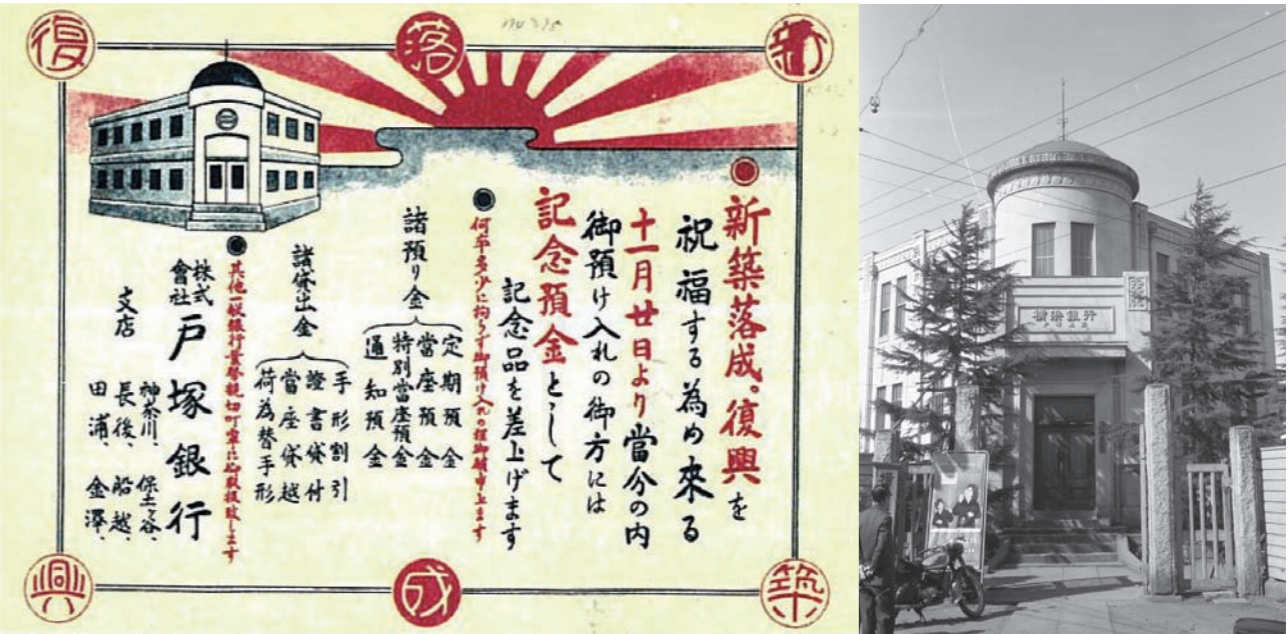 新
築
落
成
復
興
新築落成。復興を
祝福する為め來る
十一月廿日より當分の内
御預け入れの御方には
記念預金として
記念品を差上げます
何卒多少に拘らず御預け入れの程御願申上ます
諸預り金
定期預金
當座預金
特別當座預金
通知預金
諸貸出金
手形割引
證書貸付
當座貸越
荷為替手形
其他一般銀行業務親切叮寧に御取扱致します
株式會社戸塚銀行
支店
神奈川、保土ヶ谷、
長後、船越、
田浦、金澤、
横浜銀行